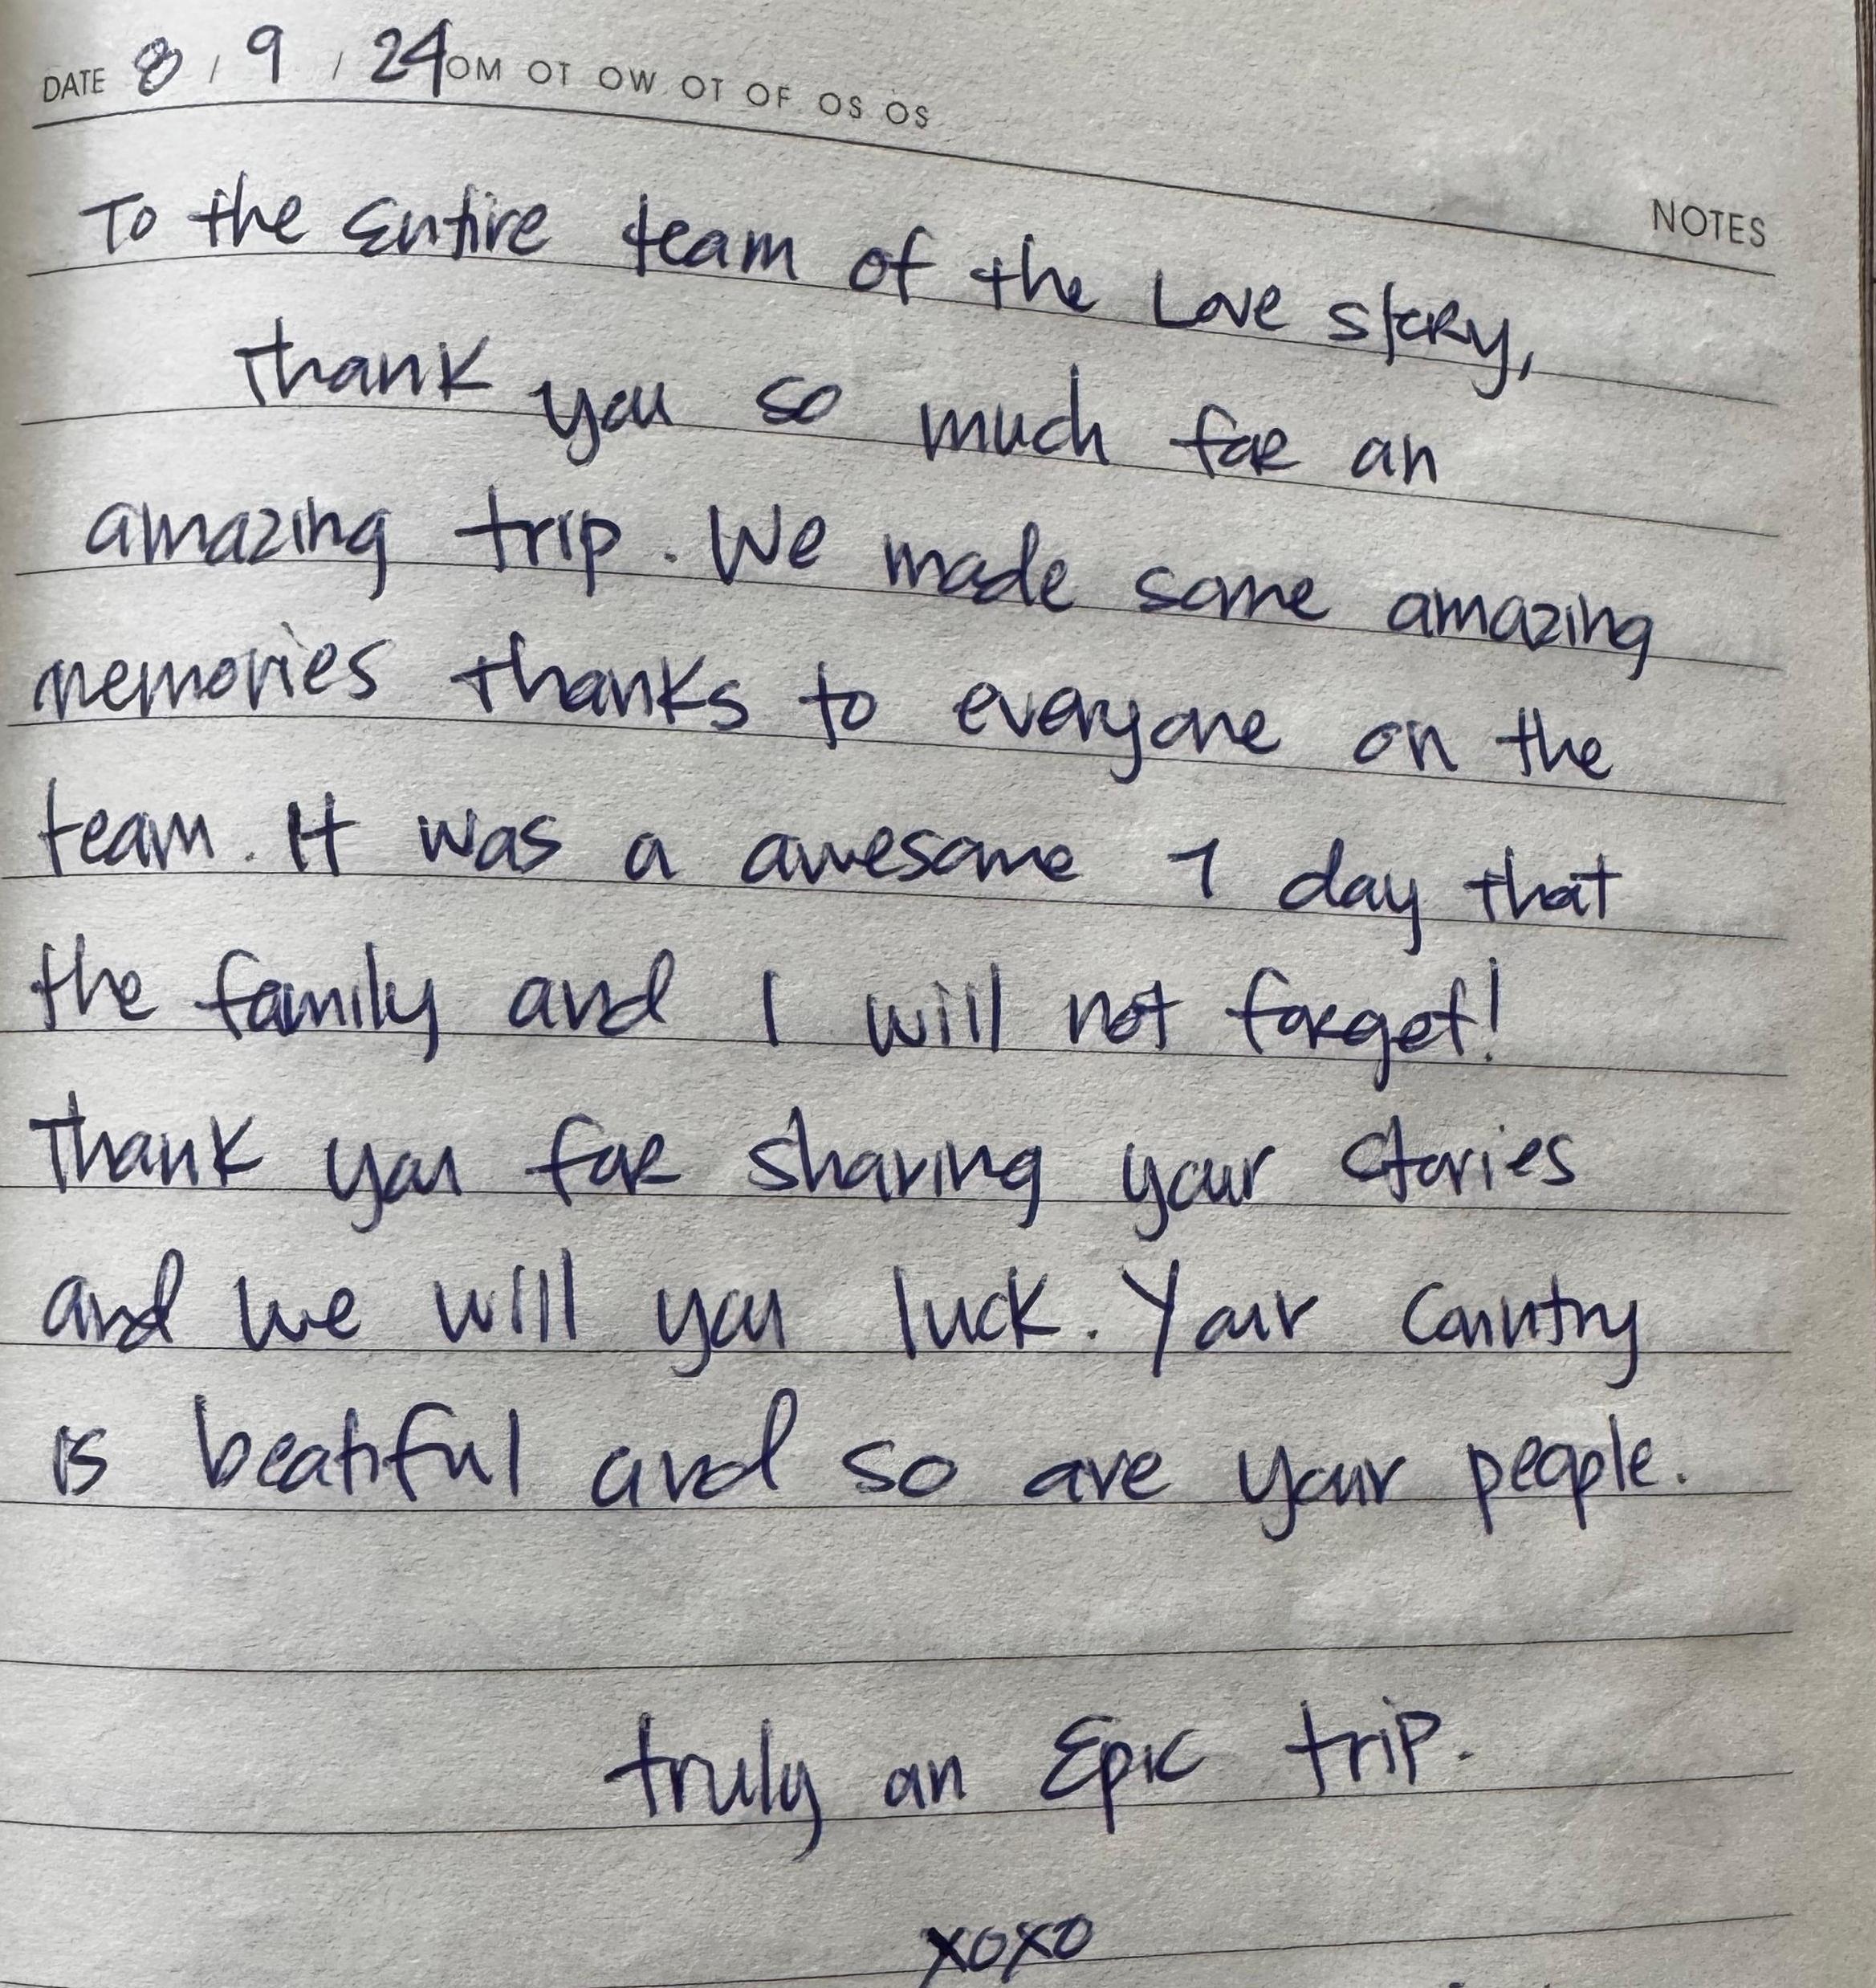 DATE 8 / 9 / 24 OM OT OW OT OF OS OS
NOTES
To the Entire team of the Love story,
Thank you so much for an
amazing trip. We made some amazing
memories thanks to everyone on the
team. It was a awesome 1 day that
the family and I will not forget!
Thank you for sharing your stories
and we will you luck. Your Country
is beatiful and so are your people.
truly an Epic trip.
xoxo